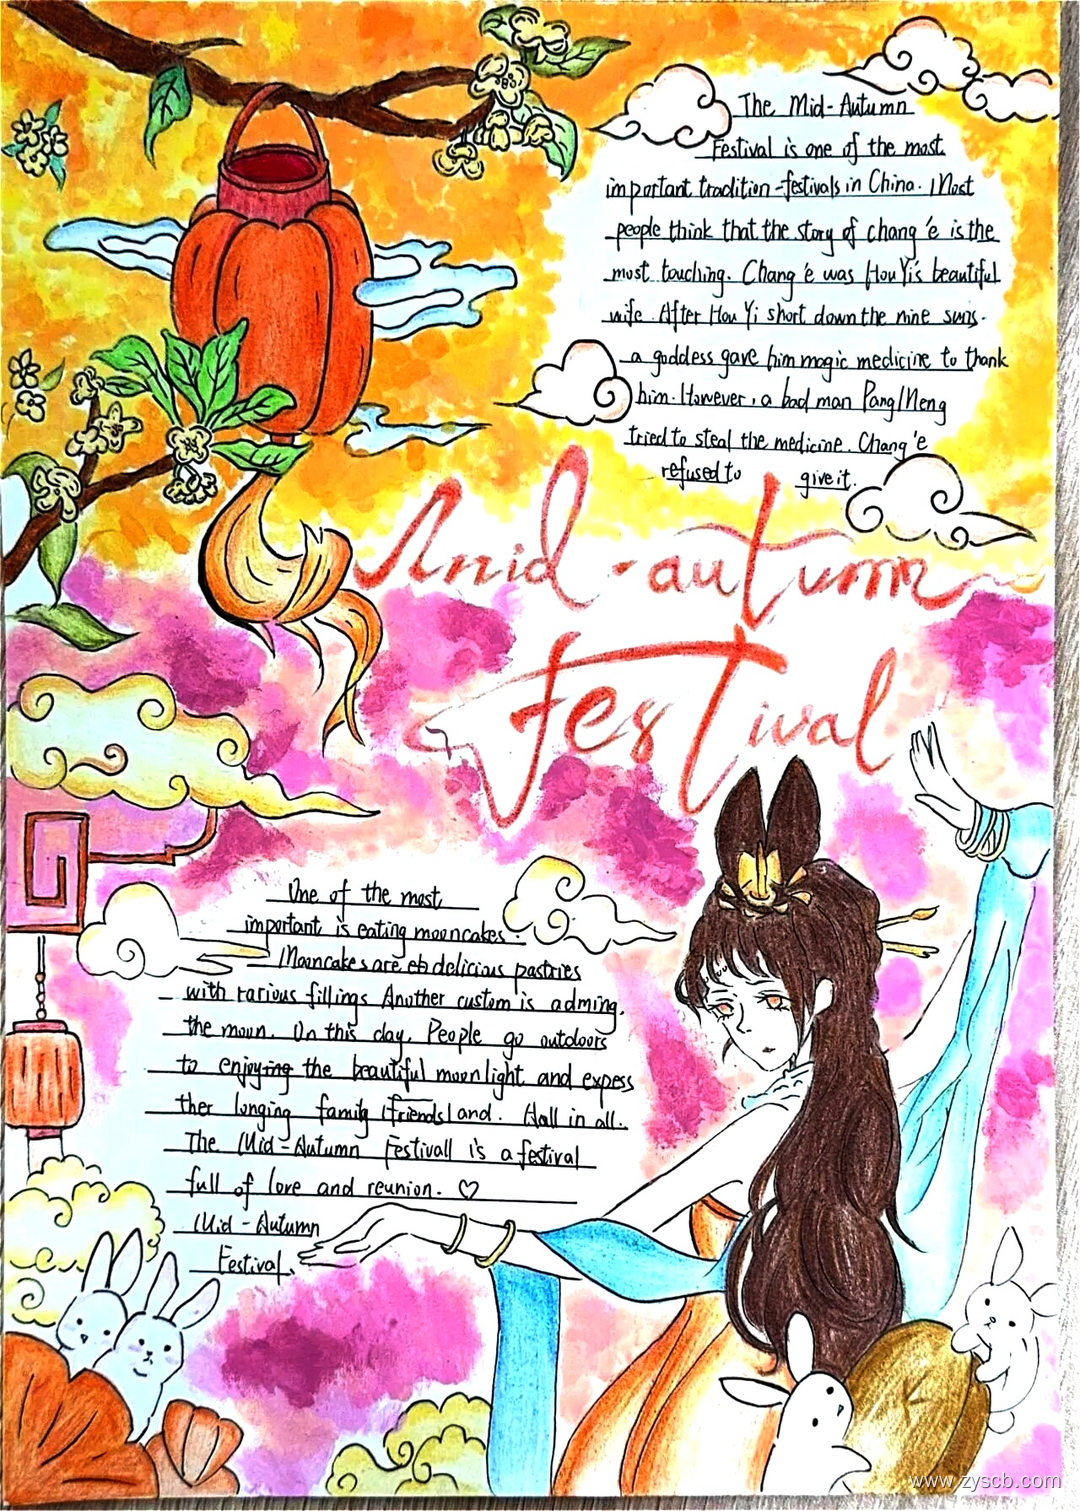 The Mid-Autumn
Festival is one of the most
important tradition-festivals in China. Most
people think that the story of chang'e is the
most touching. Chang'e was Hou Yi's beautiful
wife. After Hou Yi short down the nine suns.
a goddess gave him magic medicine to thank
him. However, a bad man Pang Meng
tried to steal the medicine. Chang'e
refused to give it.
mid-autumn
festival
One of the most
important is eating mooncakes.
Mooncakes are delicious pastries
with rarious fillings Another custom is adming.
the moon. On this day, People go outdoors
to enjoying the beautiful moonlight and expess
ther longing family (friends) and. Aall in all.
The Mid-Autumn Festivall is a festival
full of love and reunion. ♡
Mid-Autumn
Festival.
www.zyscb.com